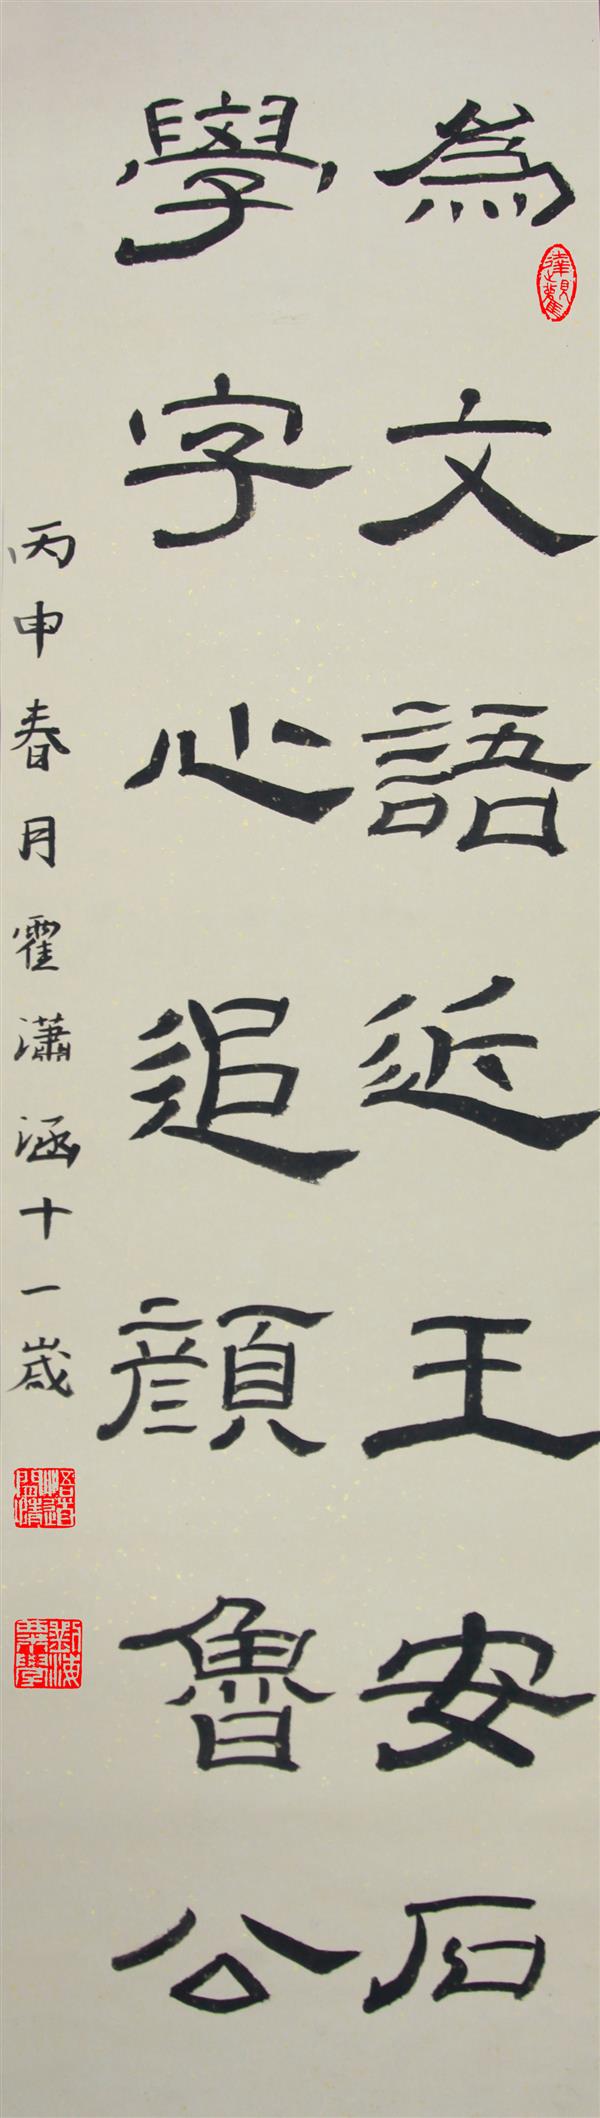 為文語近王安石
學字心追顔魯公
丙申春月霍瀟涵十一歲